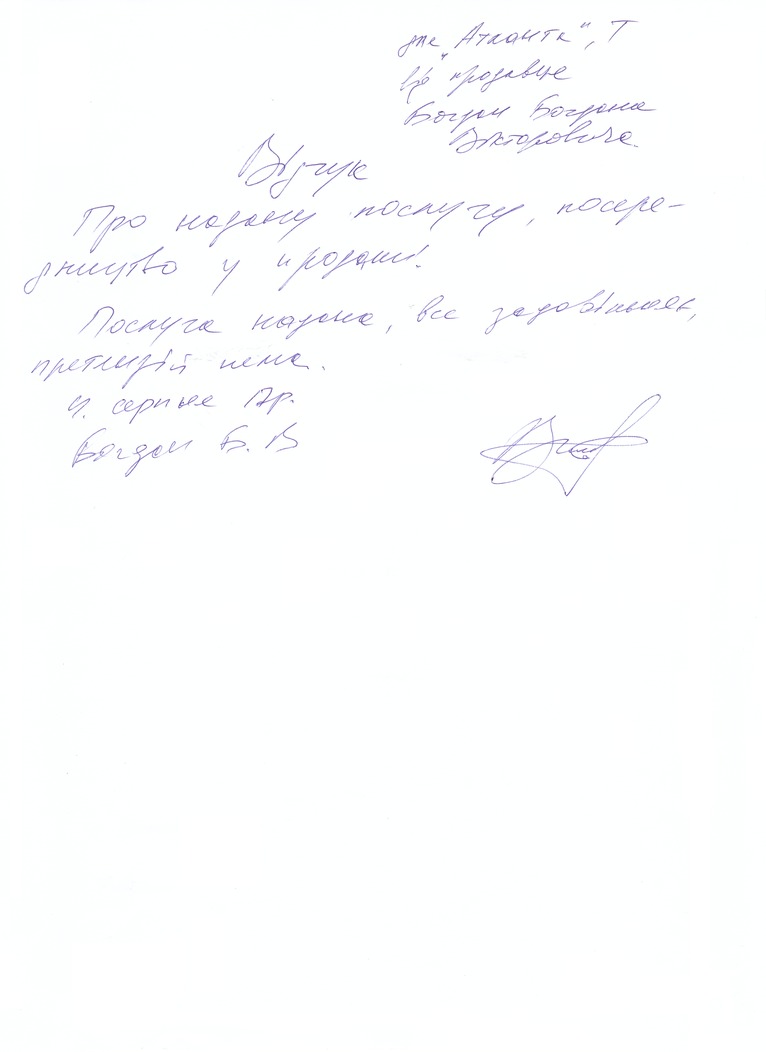 для "Атланта", Т
від продавця
Богдан Богдана
Вікторовича.
Відгук
Про надану послугу, посере-
дництво у продажі.
Послуга надана, все задовільняє,
претензій нема.
серпня
Богдан Б. В